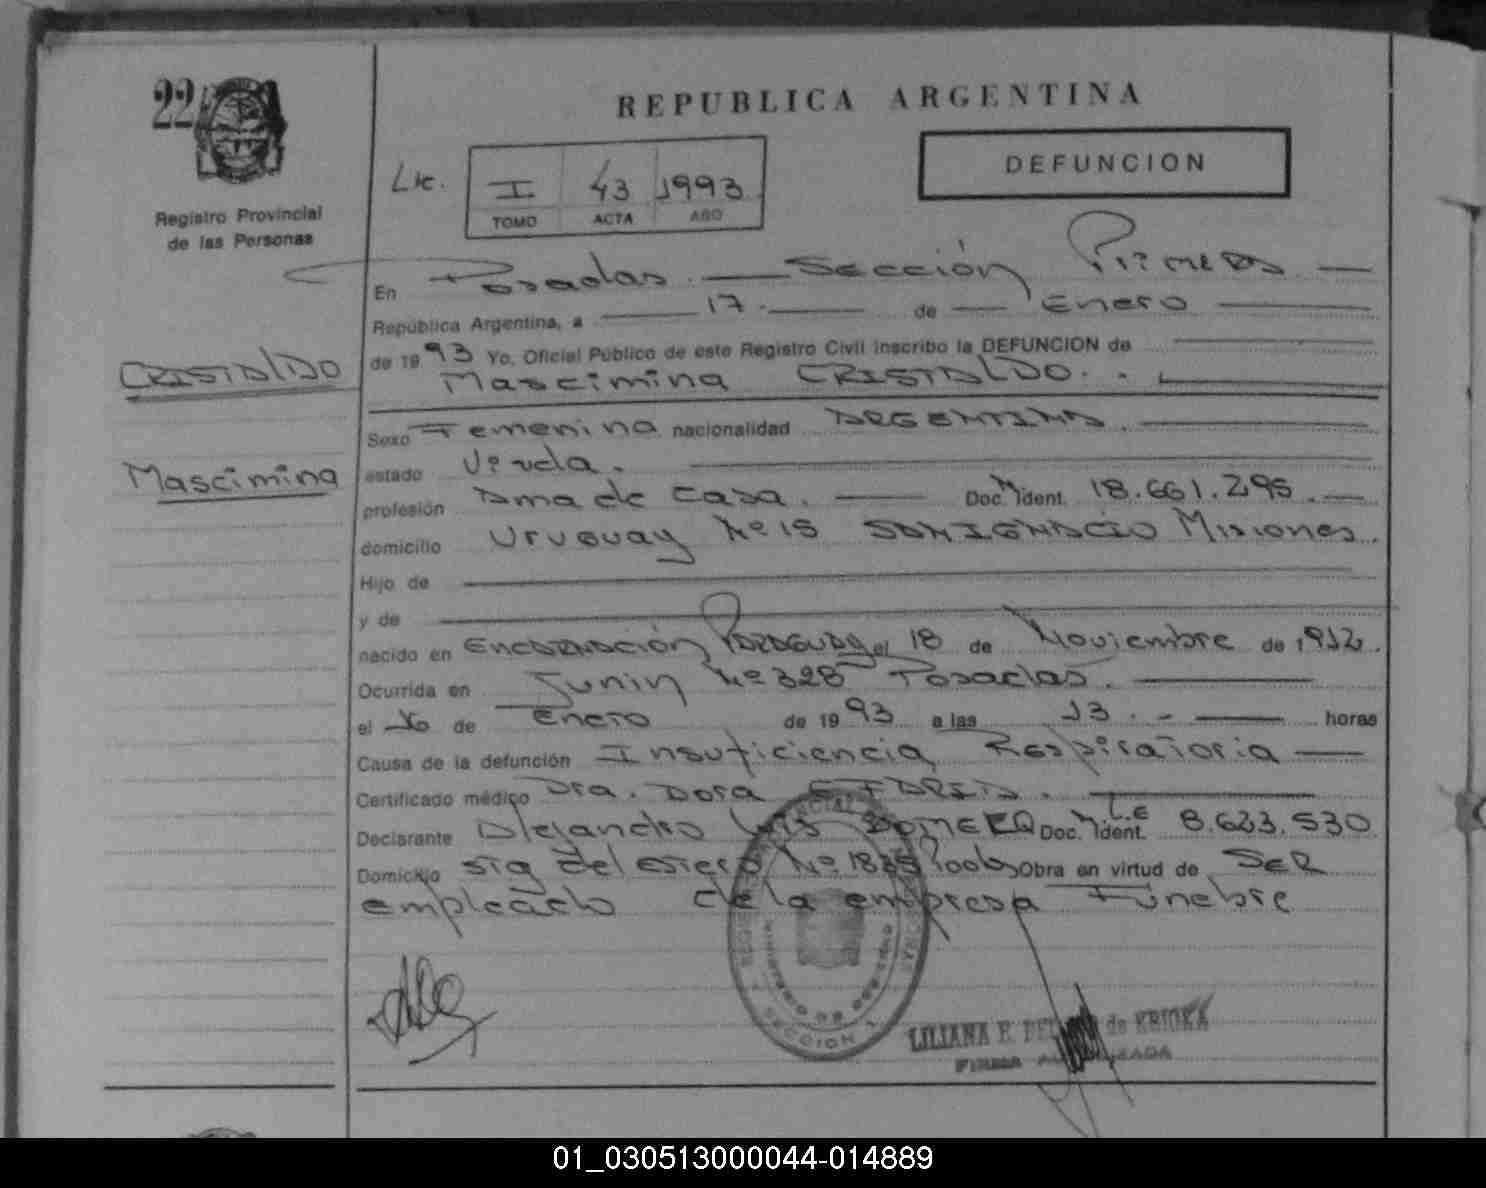 22
REPUBLICA ARGENTINA
Registro Provincial
de las Personas
Lic.
I 43 1993
TOMO ACTA AÑO
DEFUNCION
En Posadas. Sección Primera
República Argentina, a 17 de Enero
CRISTALDO
de 1993 Yo, Oficial Público de este Registro Civil inscribo la DEFUNCION de
Mascimina CRISTALDO.
Sexo Femenina nacionalidad ARGENTINA.
Mascimina
estado Viuda.
profesión Ama de casa. Doc. ident. 18.661.295.
domicilio Uruguay Nº 15 SAN IGNACIO Misiones.
Hijo de
y de
nacido en Encarnación Paraguay el 18 de Noviembre de 1912.
Ocurrida en Junin Nº 328 Posadas.
el 16 de Enero de 1993 a las 13. horas
Causa de la defunción Insuficiencia Respiratoria
Certificado médico Dra. Dora
Declarante Alejandro Luis Doc. ident. L.E 8.623.530
Domicilio Stg del estero Nº 1835 Obra en virtud de SER
empleado de la empresa Funebre
SECCION 1
LILIANA E. de KRIOKA
FIRMA AUTORIZADA
01_030513000044-014889